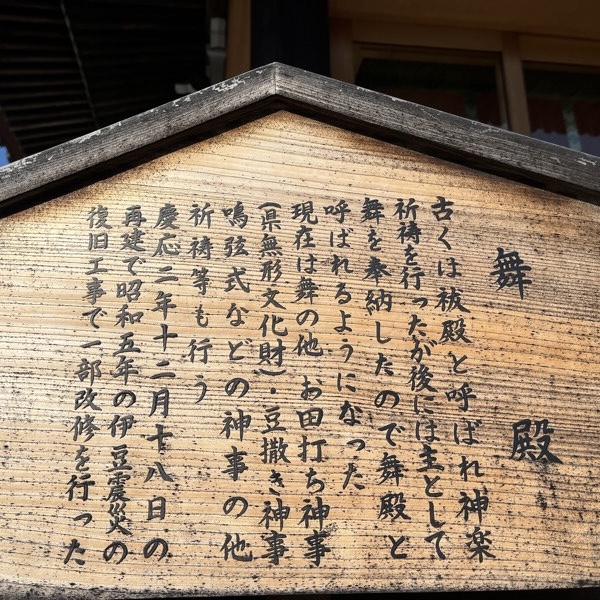 舞殿
古くは祓殿と呼ばれ神楽
祈祷を行ったが後には主として
舞を奉納したので舞殿と
呼ばれるようになった
現在は舞の他お田打ち神事
(県無形文化財)・豆撒き神事
鳴弦式などの神事の他
祈祷等も行う
慶応二年十二月十八日の
再建で昭和五年の伊豆震災の
復旧工事で一部改修を行った